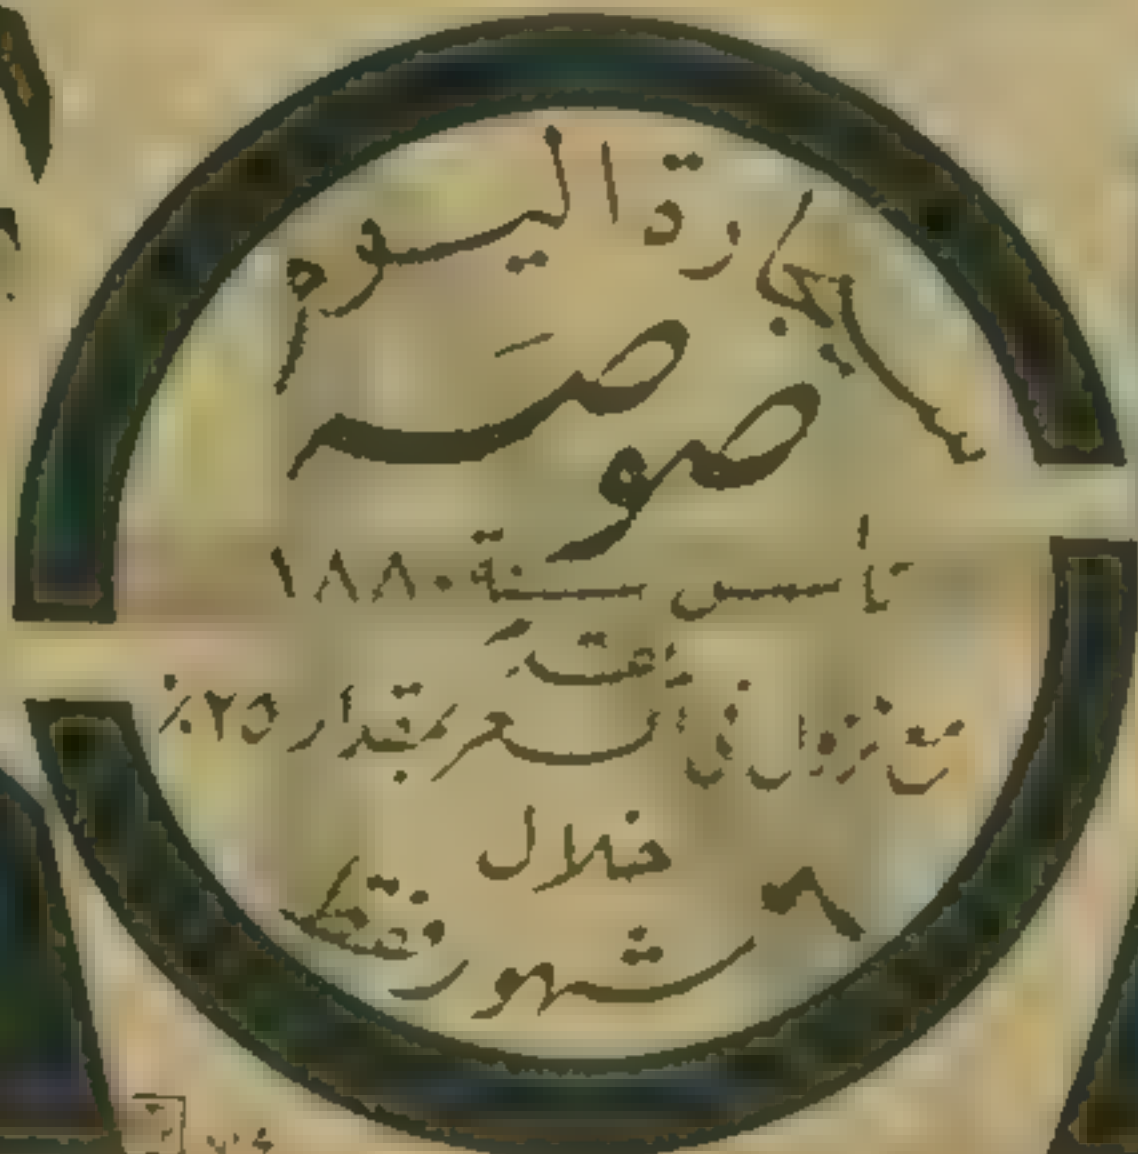 سيجارة اليوم
صوصه
تأسس سنة ١٨٨٠
تنزل في السعر بمقدار ٢٥٪
خلال
٦ شهور فقط